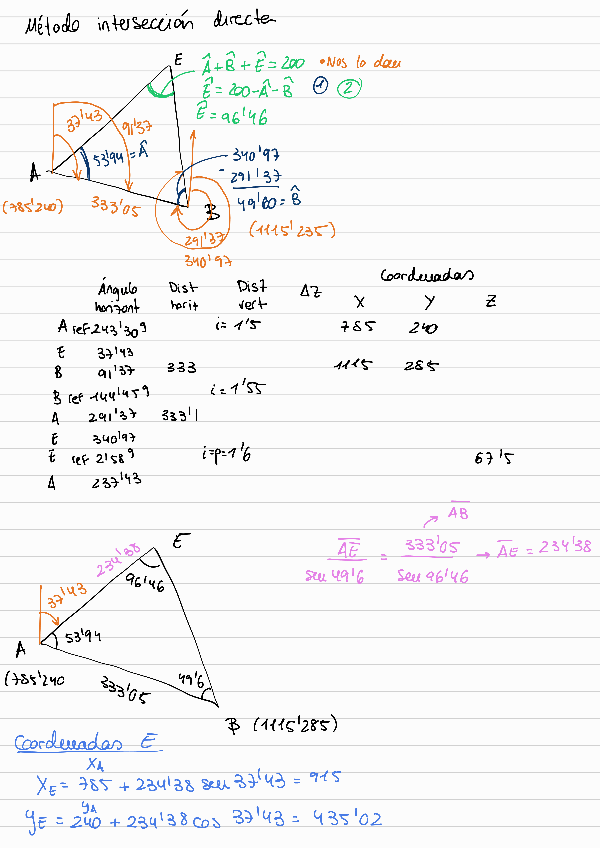 Método intersección directa
E
Â + B̂ + Ê = 200 • Nos lo dan
Ê = 200 - Â - B̂ ① ②
Ê = 96'46
37'43
91'37
53'94 = Â
A
(785'240)
333'05
340'97
- 291'37
49'60 = B̂
B
(1115'235)
291'37
340'97
Coordenadas
Ángulo horizont Dist horit Dist vert ΔZ X Y Z
A ref 243'30g i = 1'5 785 240
E 37'43
B 91'37 333 1115 285
B ref 144'45g i = 1'55
A 291'37 333'1
E 340'97
E ref 2'58g i=p=1'6 67'5
A 237'43
AB
AE / sen 49'6 = 333'05 / sen 96'46 → AE = 234'38
E
234'38
96'46
37'43
A
53'94
(785'240
333'05
49'6
B (1115'285)
Coordenadas E
XA
XE = 785 + 234'38 sen 37'43 = 915
yA
yE = 240 + 234'38 cos 37'43 = 435'02